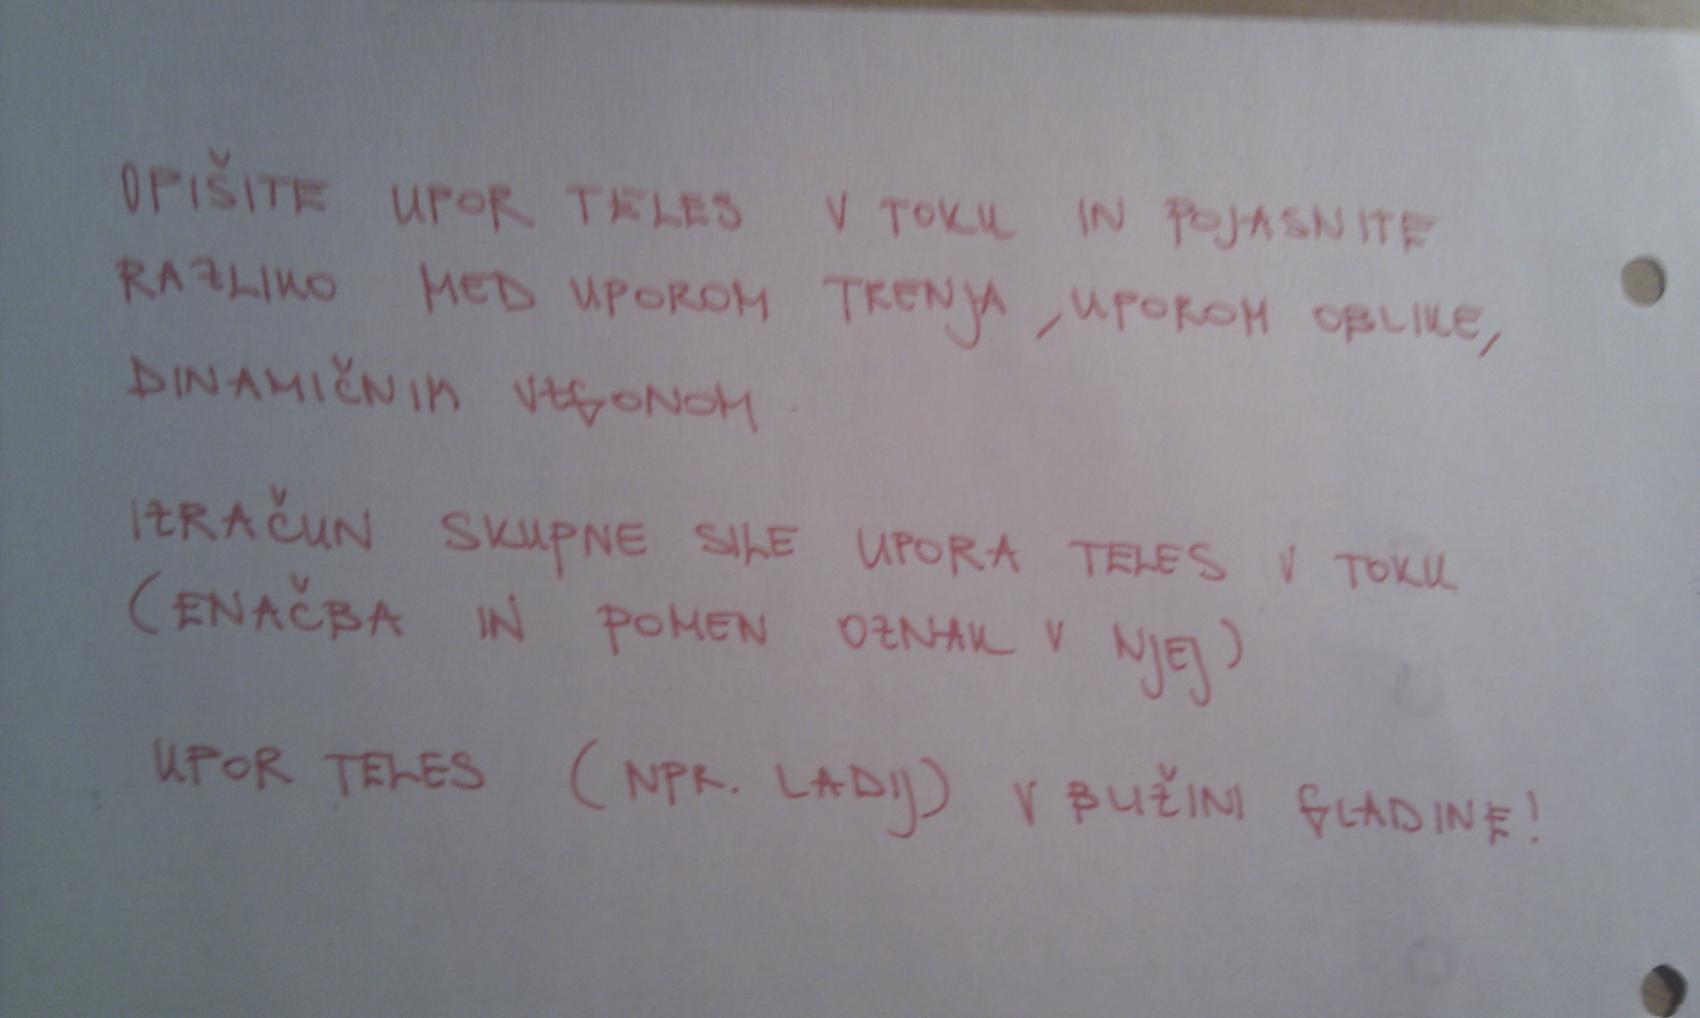 OPIŠITE UPOR TELES V TOKU IN POJASNITE
RAZLIKO MED UPOROM TRENJA, UPOROM OBLIKE,
DINAMIČNIM VZGONOM.
IZRAČUN SKUPNE SILE UPORA TELES V TOKU
(ENAČBA IN POMEN OZNAK V NJEJ)
UPOR TELES (NPR. LADIJ) V BLIŽINI GLADINE!